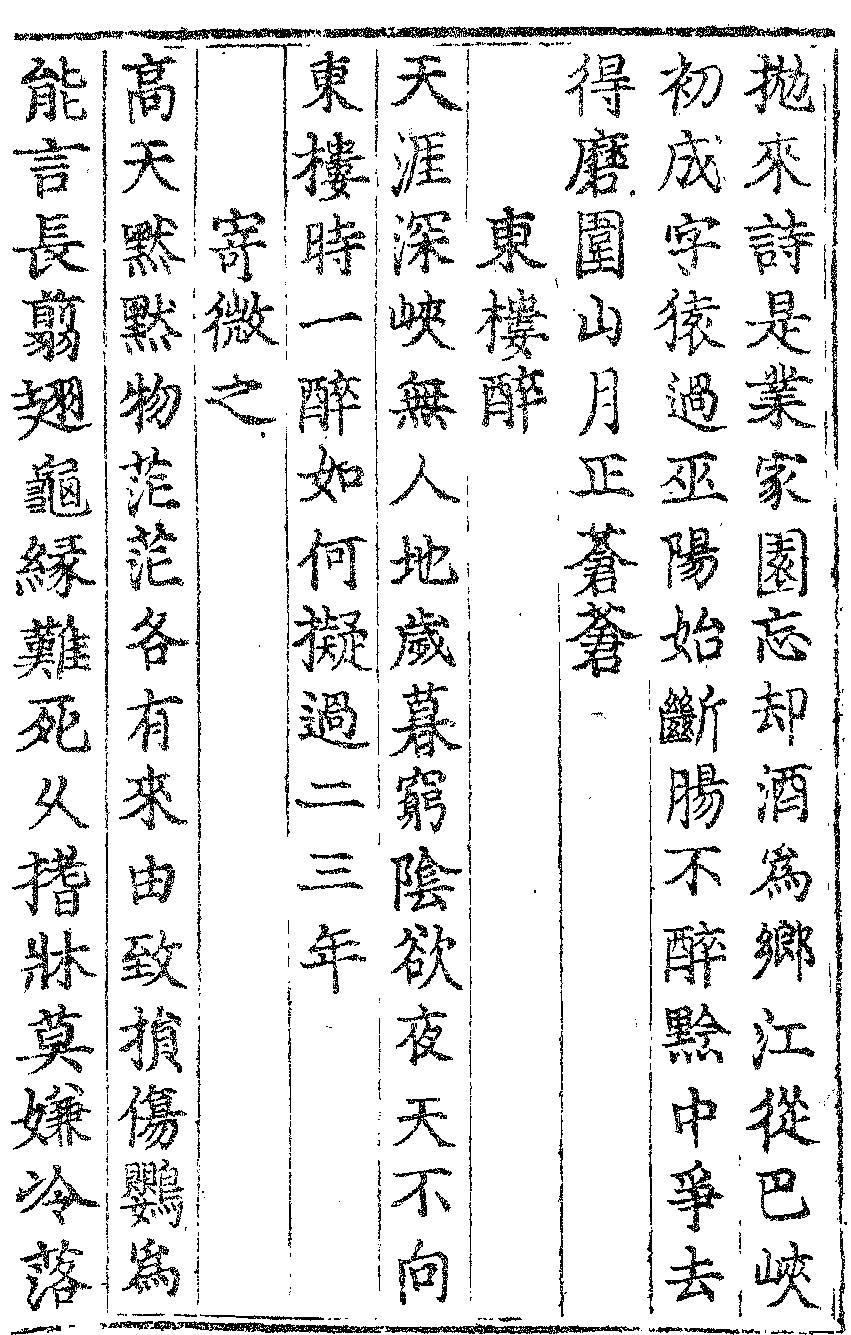 拋來詩是業家園忘却酒爲鄉江從巴峽
初成字猿過巫陽始斷腸不醉黔中爭去
得磨圍山月正蒼蒼
東樓醉
天涯深峽無人地歲暮窮陰欲夜天不向
東樓時一醉如何擬過二三年
寄微之
高天默默物茫茫各有來由致損傷鸚爲
能言長翦翅龜縁難死久搘牀莫嫌冷落